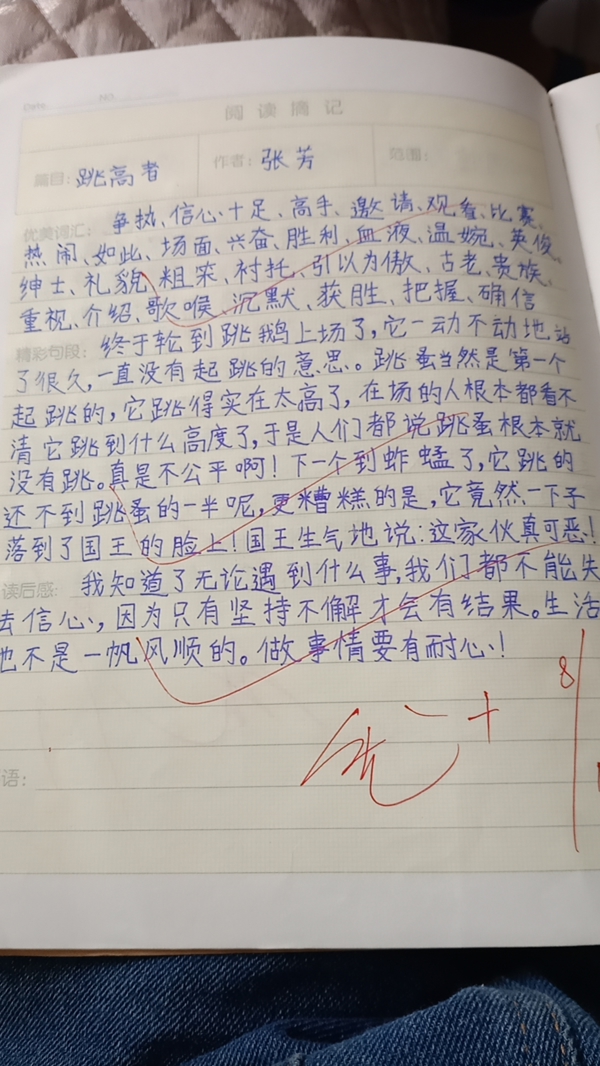 Date. NO.
阅读摘记
篇目：跳高者 作者：张芳 范围：
优美词汇：争执、信心十足、高手、邀请、观看、比赛、
热闹、如此、场面、兴奋、胜利、血液、温婉、英俊、
绅士、礼貌、粗笨、衬托、引以为傲、古老、贵族、
重视、介绍、歌喉、沉默、获胜、把握、确信
精彩句段：终于轮到跳鹅上场了，它一动不动地站
了很久，一直没有起跳的意思。跳蚤当然是第一个
起跳的，它跳得实在太高了，在场的人根本都看不
清它跳到什么高度了，于是人们都说跳蚤根本就
没有跳。真是不公平啊！下一个到蚱蜢了，它跳的
还不到跳蚤的一半呢，更糟糕的是，它竟然一下子
落到了国王的脸上！国王生气地说：这家伙真可恶！
读后感：我知道了无论遇到什么事，我们都不能失
去信心，因为只有坚持不懈才会有结果。生活
也不是一帆风顺的。做事情要有耐心！
优+
8
语：